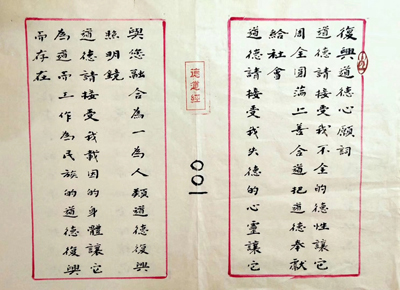 復興道德心願詞
道德請接受我不全的德性讓它
周全圓滿上善合道把道德奉獻
給社會
道德請接受我失德的心靈讓它
德道經
〇〇一
與您融合為一為人類道德復興
照明鏡
道德請接受我載因的身體讓它
為道而工作為民族的道德復興
而存在